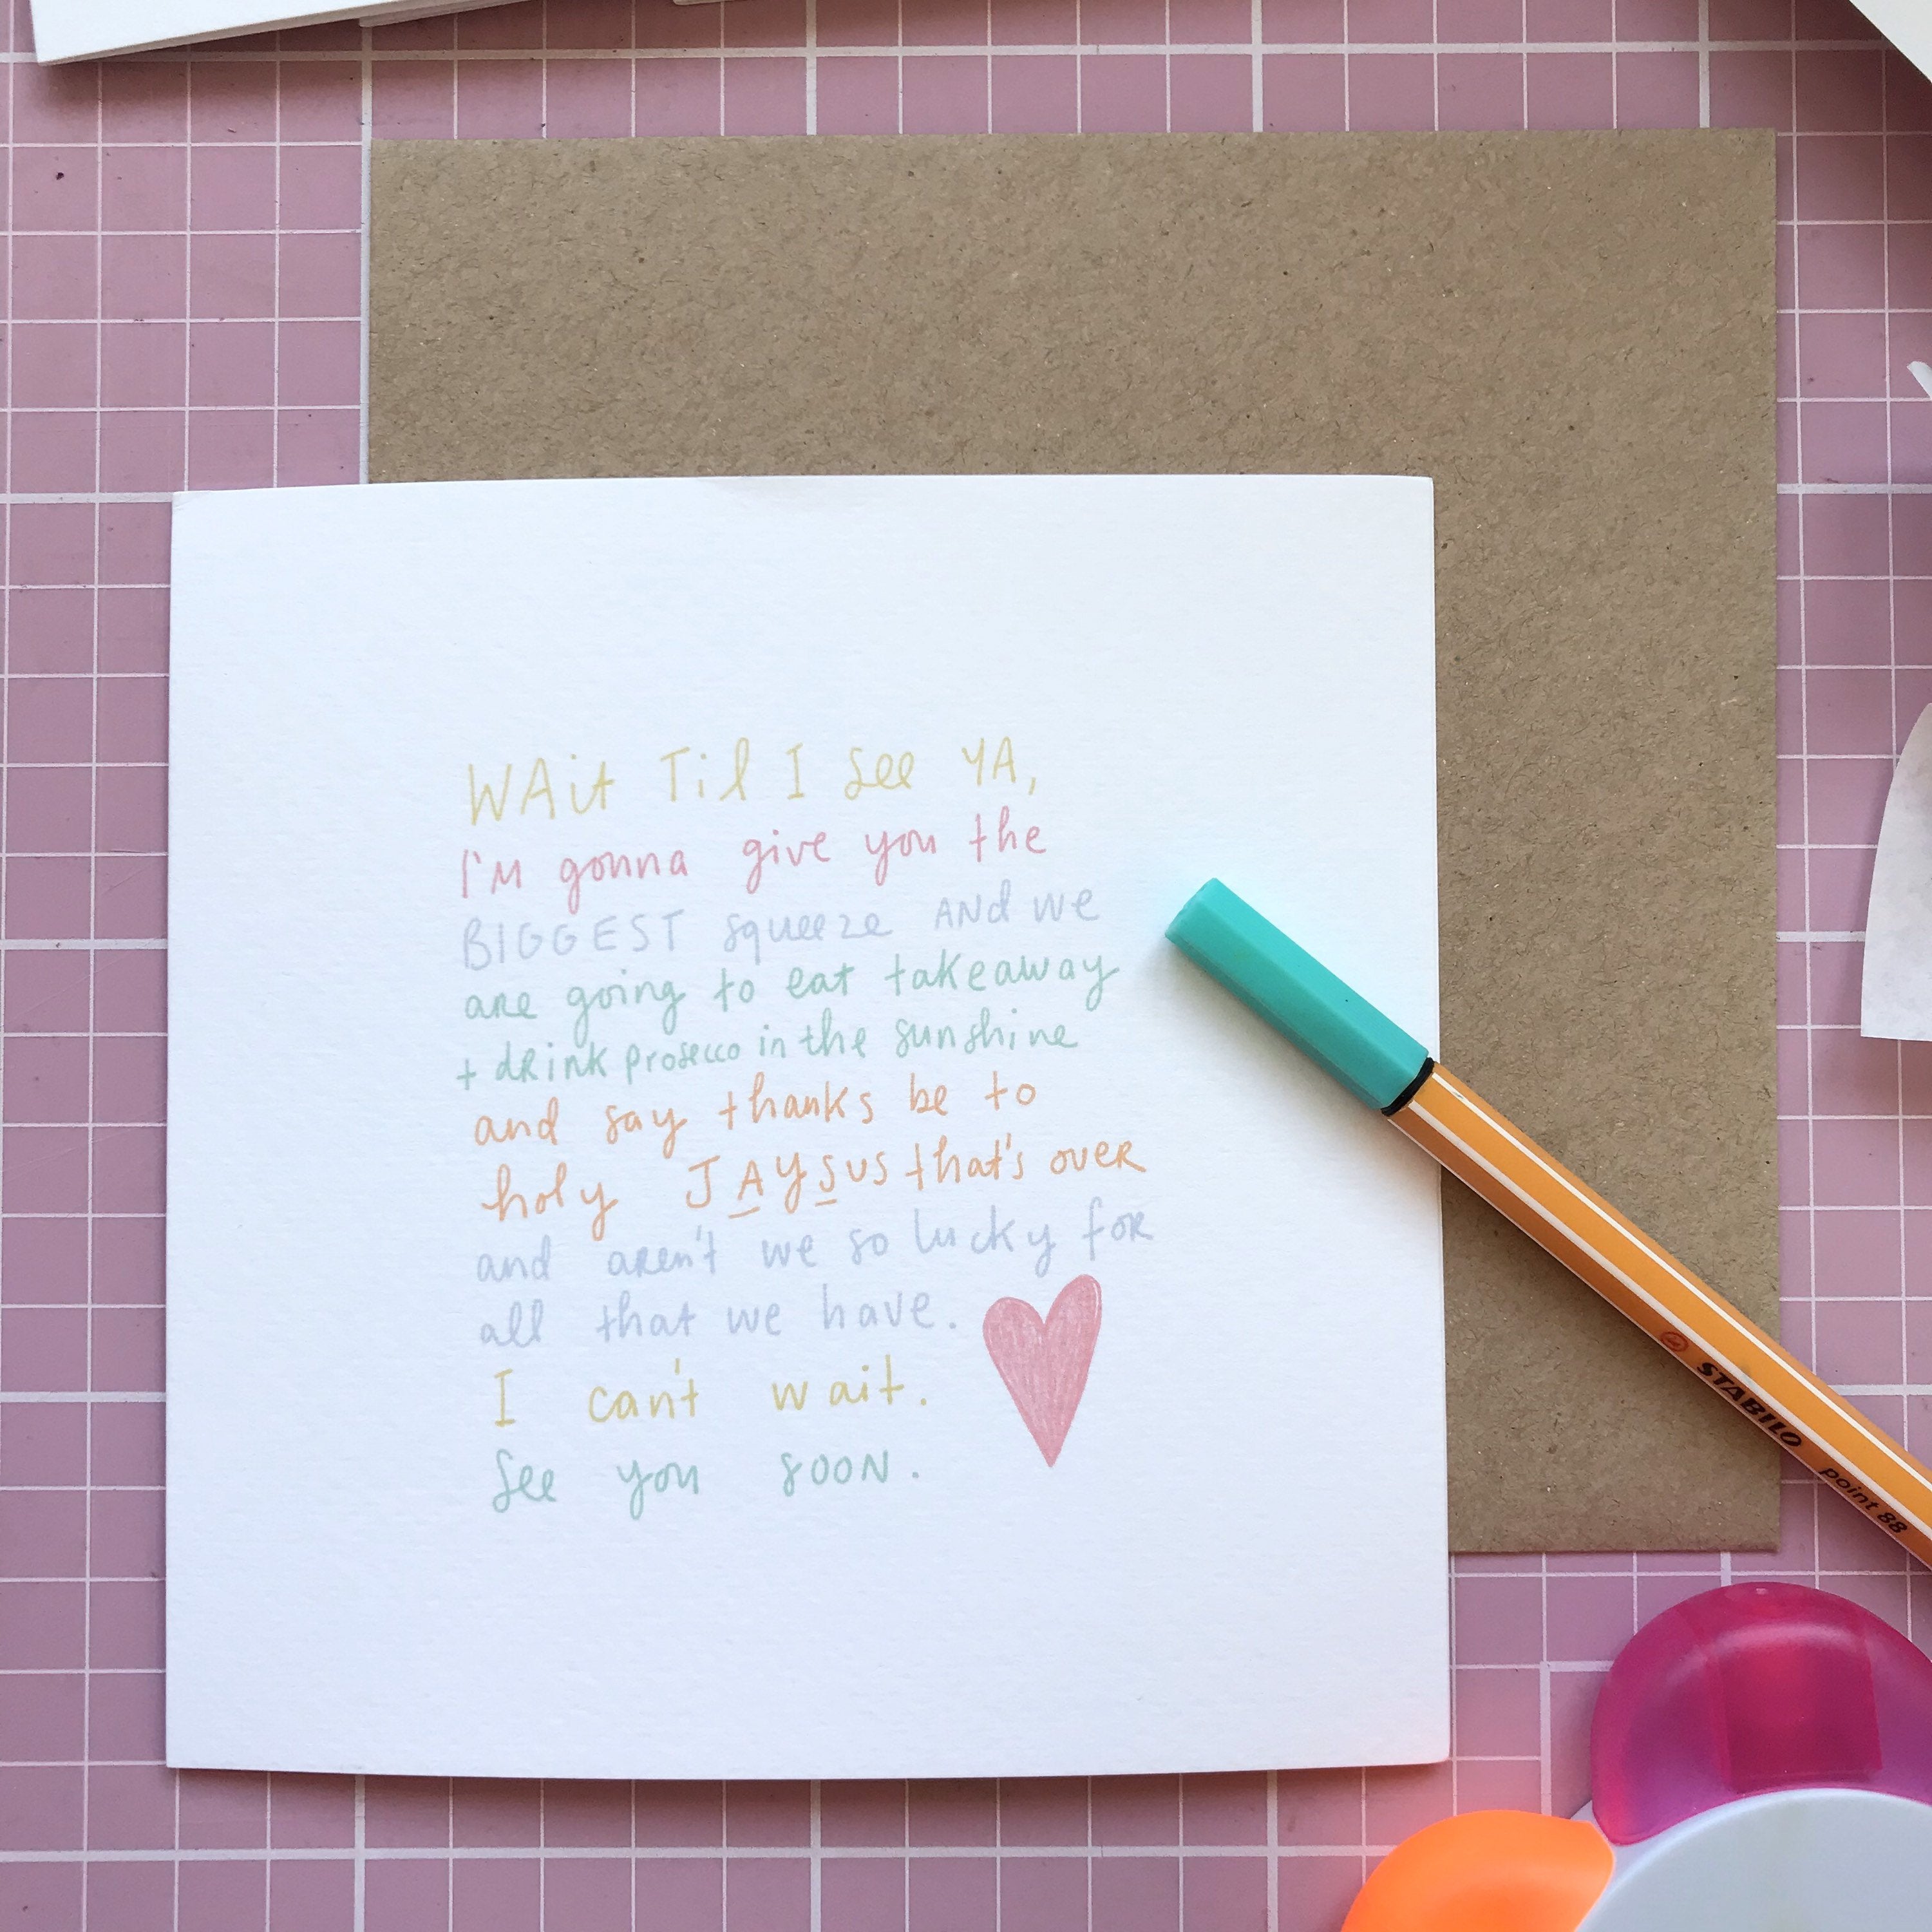 WAit Til I see YA,
I'M gonna give you the
BIGGEST squeeze ANd we
are going to eat takeaway
+ dRink prosecco in the sunshine
and say thanks be to
holy JAYSUS that's oveR
and aren't we so lucky foR
all that we have.
I can't wait.
See you sooN.
STABILO point 88